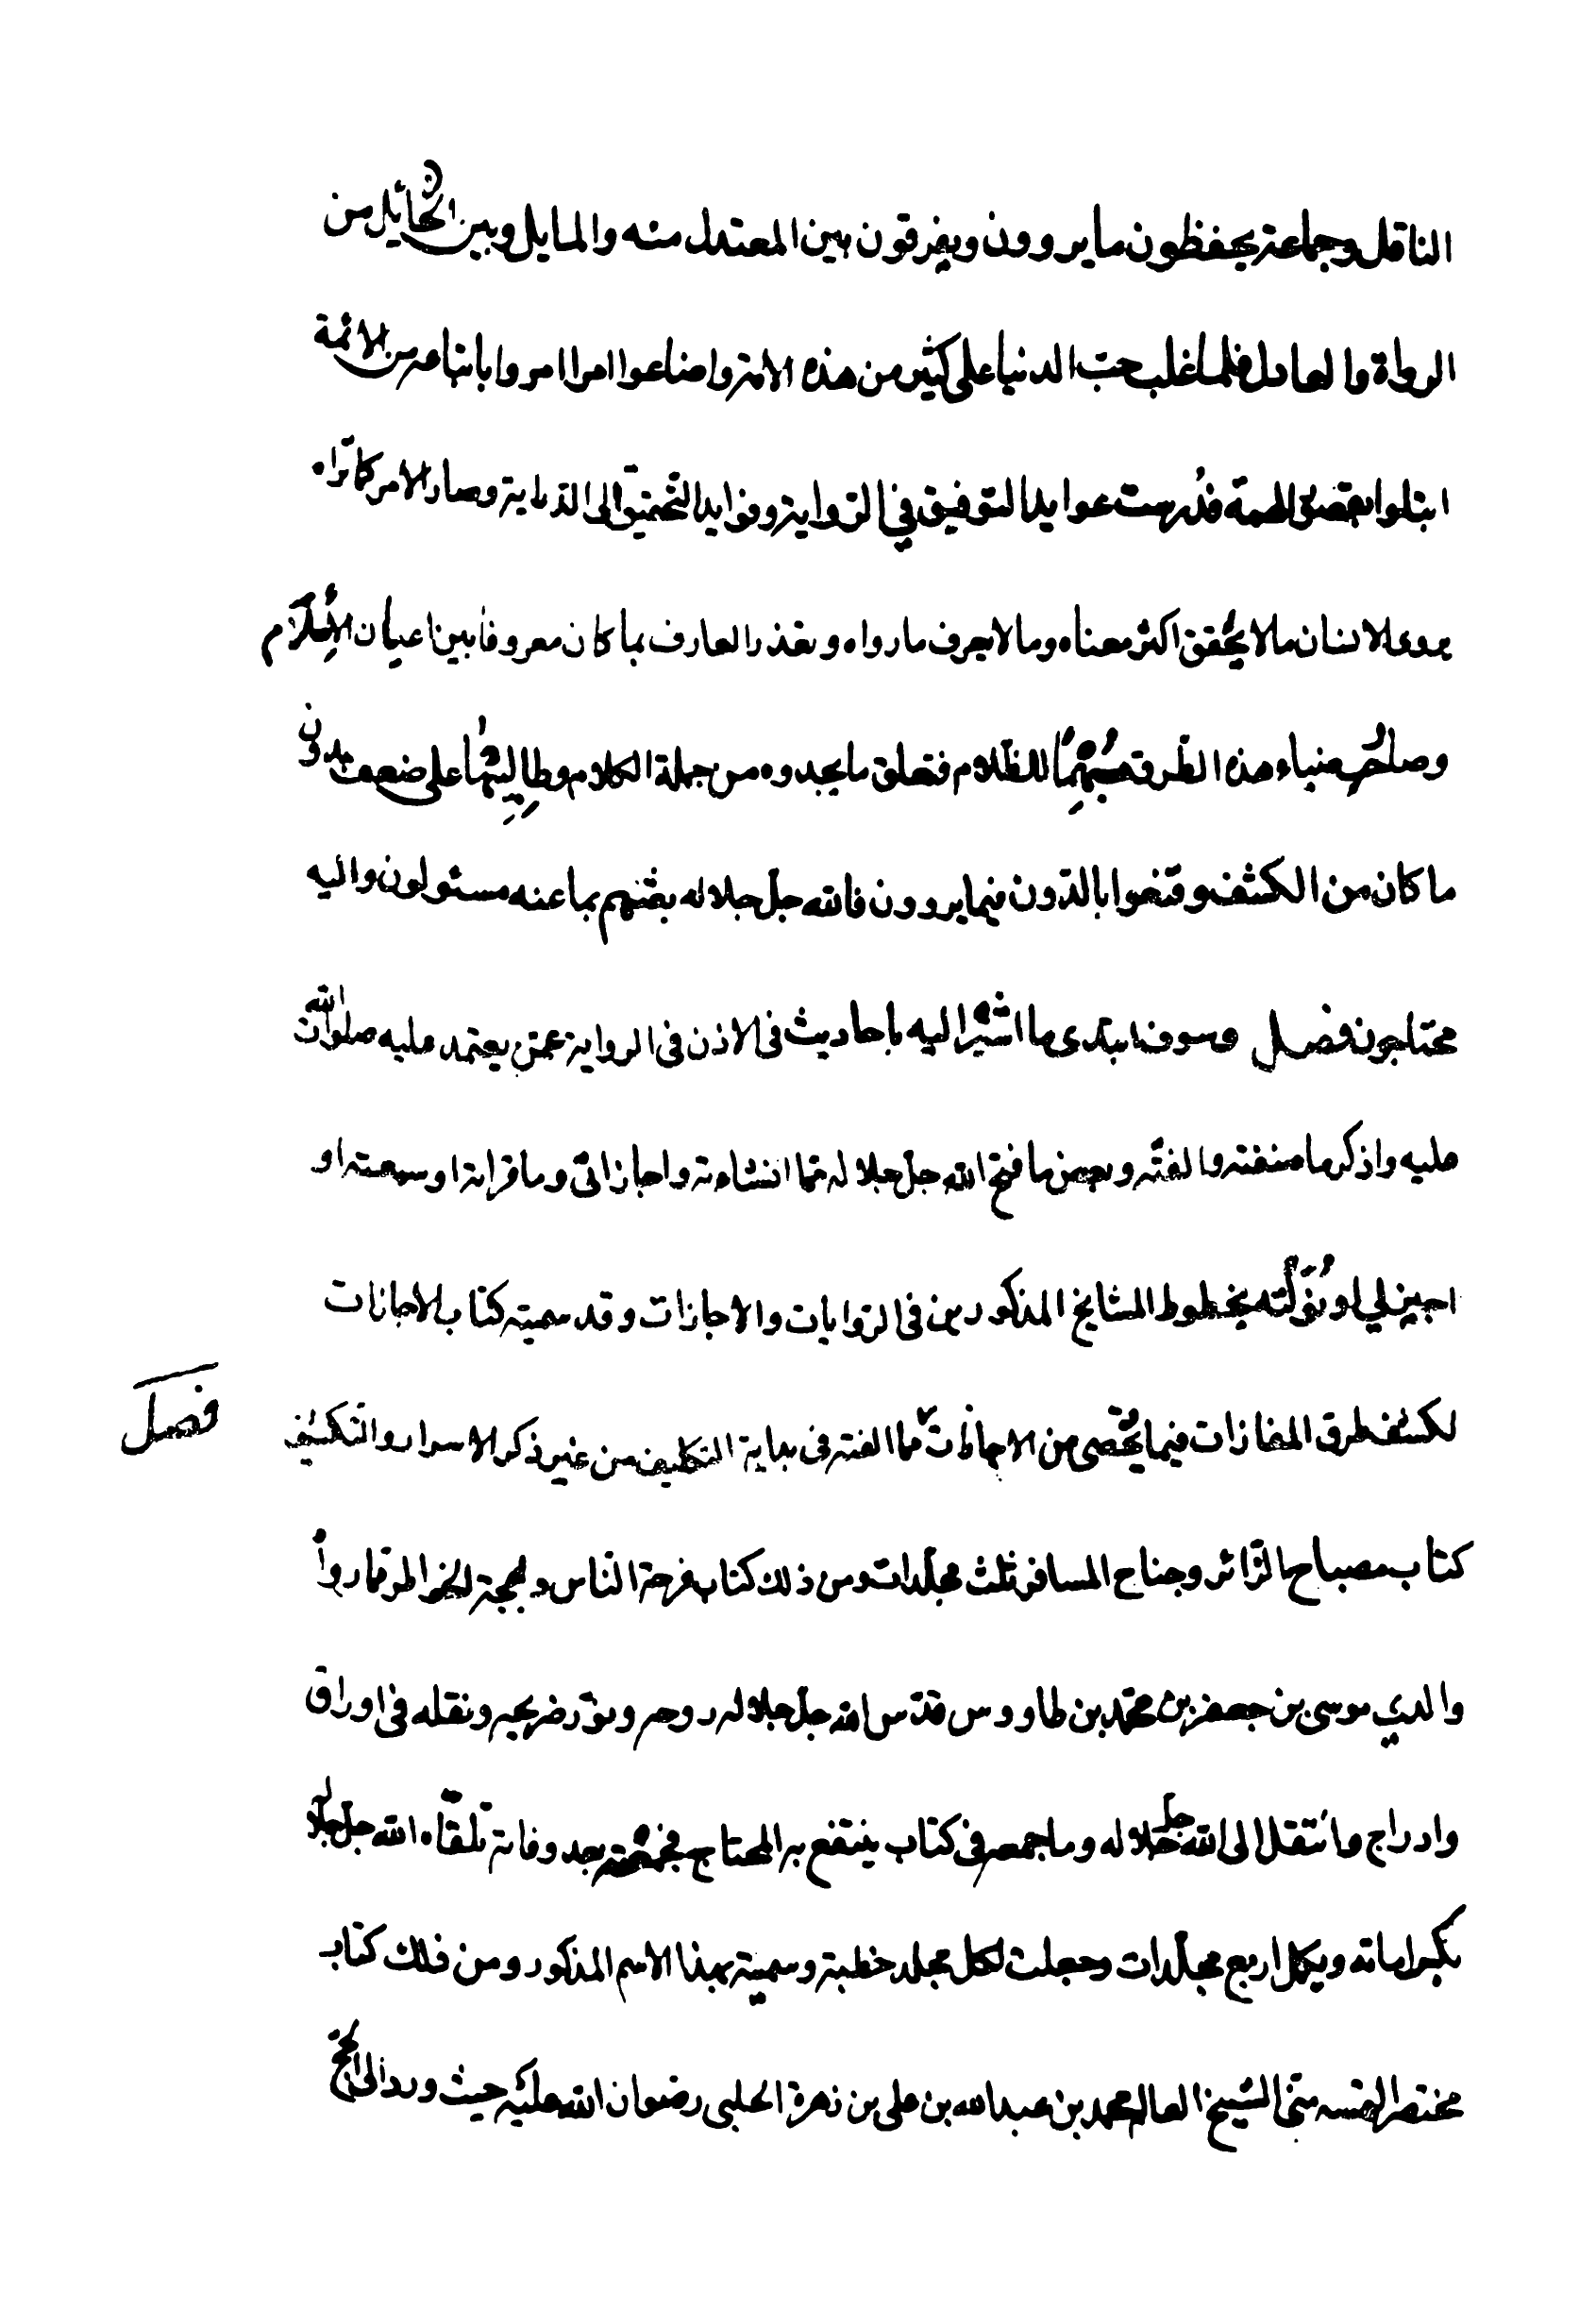 الناقل وجماعة يحفظون ما يروون ويفرقون بين المعتدل منه والمايل وبين الحايل من
الرواة والعادل فلما غلب حب الدنيا على كثير من هذه الامة واضاعوا امرا امروا باتباعه من الائمة
ابتلوا بقصور الهمة فدرست عوايد التوفيق في الرواية وفوايد التحقيق الى الدراية وصار الامر كما تراه
يروى الانسان ما لا يحقق اكثر معناه وما لا يعرف ما رواه وتعذر العارف بما كان معروفا بين اعيان الاسلام
وصار ضياء هذه الطرق للظلام فتعلق ما يجدوه من جملة الكلام وطالبيها على ضعف بدون
ما كان من الكشف وقنعوا بالدون فيما يروون فالله جل جلاله بما عنه مسئولون واليه
محتاجون فصل وسوف ابتدى ما اشير اليه باحاديث في الاذن في الرواية عمن يعتمد عليه صلوات الله
عليه واذكر ما صنفته والفته وبعض ما فتح الله جل جلاله مما انشاءته واجازاتى وما قراته او سمعته او
اجيز لي او نوولته بخطوط المشايخ المذكورين في الروايات والاجازات وقد سميته كتاب الاجازات
لكشف طرق المفازات فيما يخصى من الاجازات مما الفته في بداية التكليف من غير ذكر الاسرار والتكشيف
فصل
كتاب مصباح الزائر وجناح المسافر ثلث مجلدات ومن ذلك كتاب فرحة الناس وبهجة الخواطر مما رواه
والدي موسى بن جعفر بن محمد بن طاووس قدس الله جل جلاله روحه ونور ضريحه ونقله في اوراق
وادراج وانتقل الى الله جل جلاله وما جمعه في كتاب ينتفع به المحتاج فجمعته بعد وفاته تلقاه الله جل جلاله
ويكمل اربع مجلدات وجعلت لكل مجلد خطبة وسميته بهذا الاسم المذكور ومن ذلك كتاب
مختصر التمسه منى الشيخ العالم محمد بن عبدالله بن على بن زهرة الحلبى رضوان الله عليه حيث ورد الى الحج